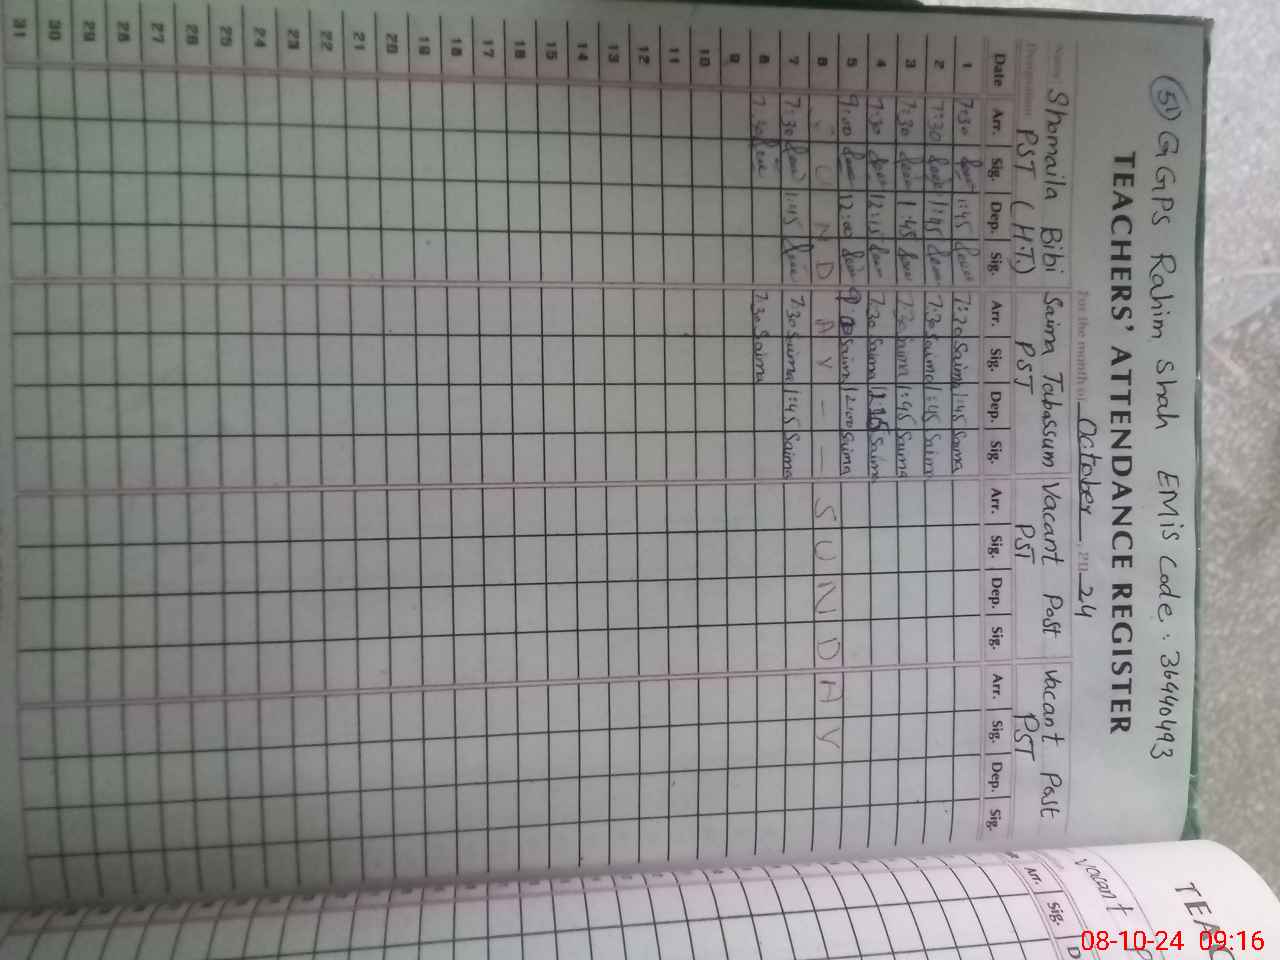 (51) GGPS Rahim Shah EMIS Code: 36440493
TEACHERS' ATTENDANCE REGISTER
For the month of October, 2024
Name Shomaila Bibi Saima Tabassum Vacant Post Vacant Post
Designation PST (H.T.) PST PST PST
Date Arr. Sig. Dep. Sig. Arr. Sig. Dep. Sig. Arr. Sig. Dep. Sig. Arr. Sig. Dep. Sig.
1 7:30 1:45 7:30 Saima 1:45 Saima
2 7:30 1:45 7:30 Saima 1:45 Saima
3 7:30 1:45 7:30 Saima 1:45 Saima
4 7:30 12:15 7:30 Saima 12:15 Saima
5 9:00 12:00 9:00 Saima 12:00 Saima
6 SUNDAY - - SUNDAY
7 7:30 1:45 7:30 Saima 1:45 Saima
8 7:30 7:30 Saima
9
10
11
12
13
14
15
16
17
18
19
20
21
22
23
24
25
26
27
28
29
30
31
TEAC
Vacant
Arr. Sig. D
08-10-24 09:16